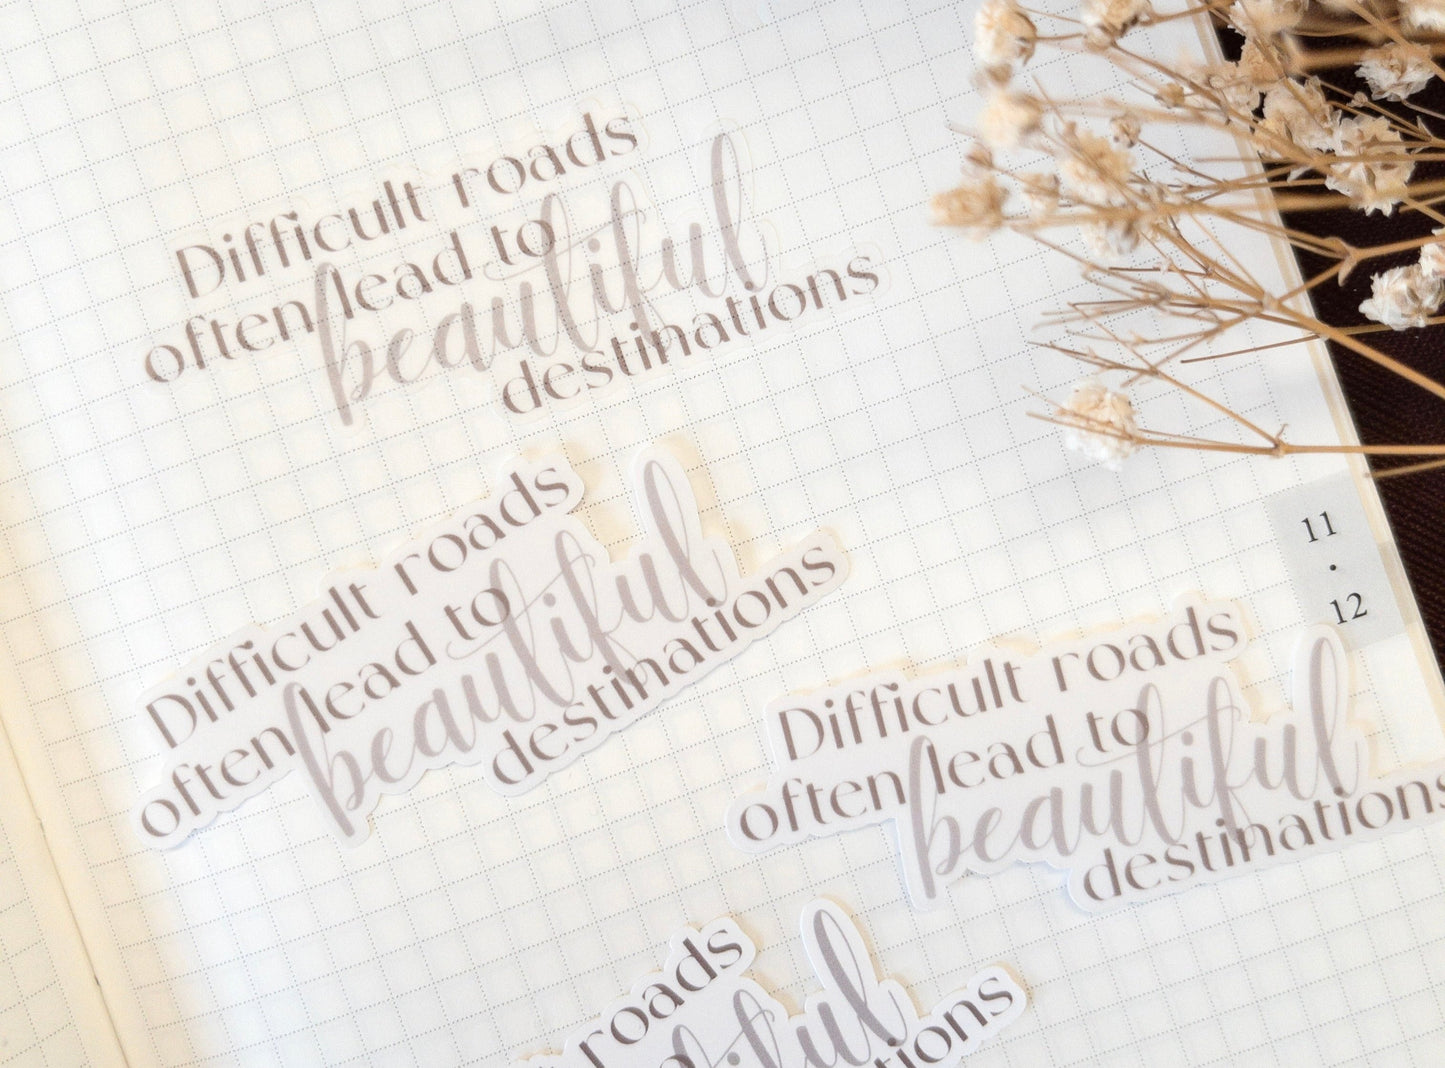 Difficult roads
often lead to
beautiful
destinations
Difficult roads
often lead to
beautiful
destinations
11
•
12
Difficult roads
often lead to
beautiful
destinations
roads